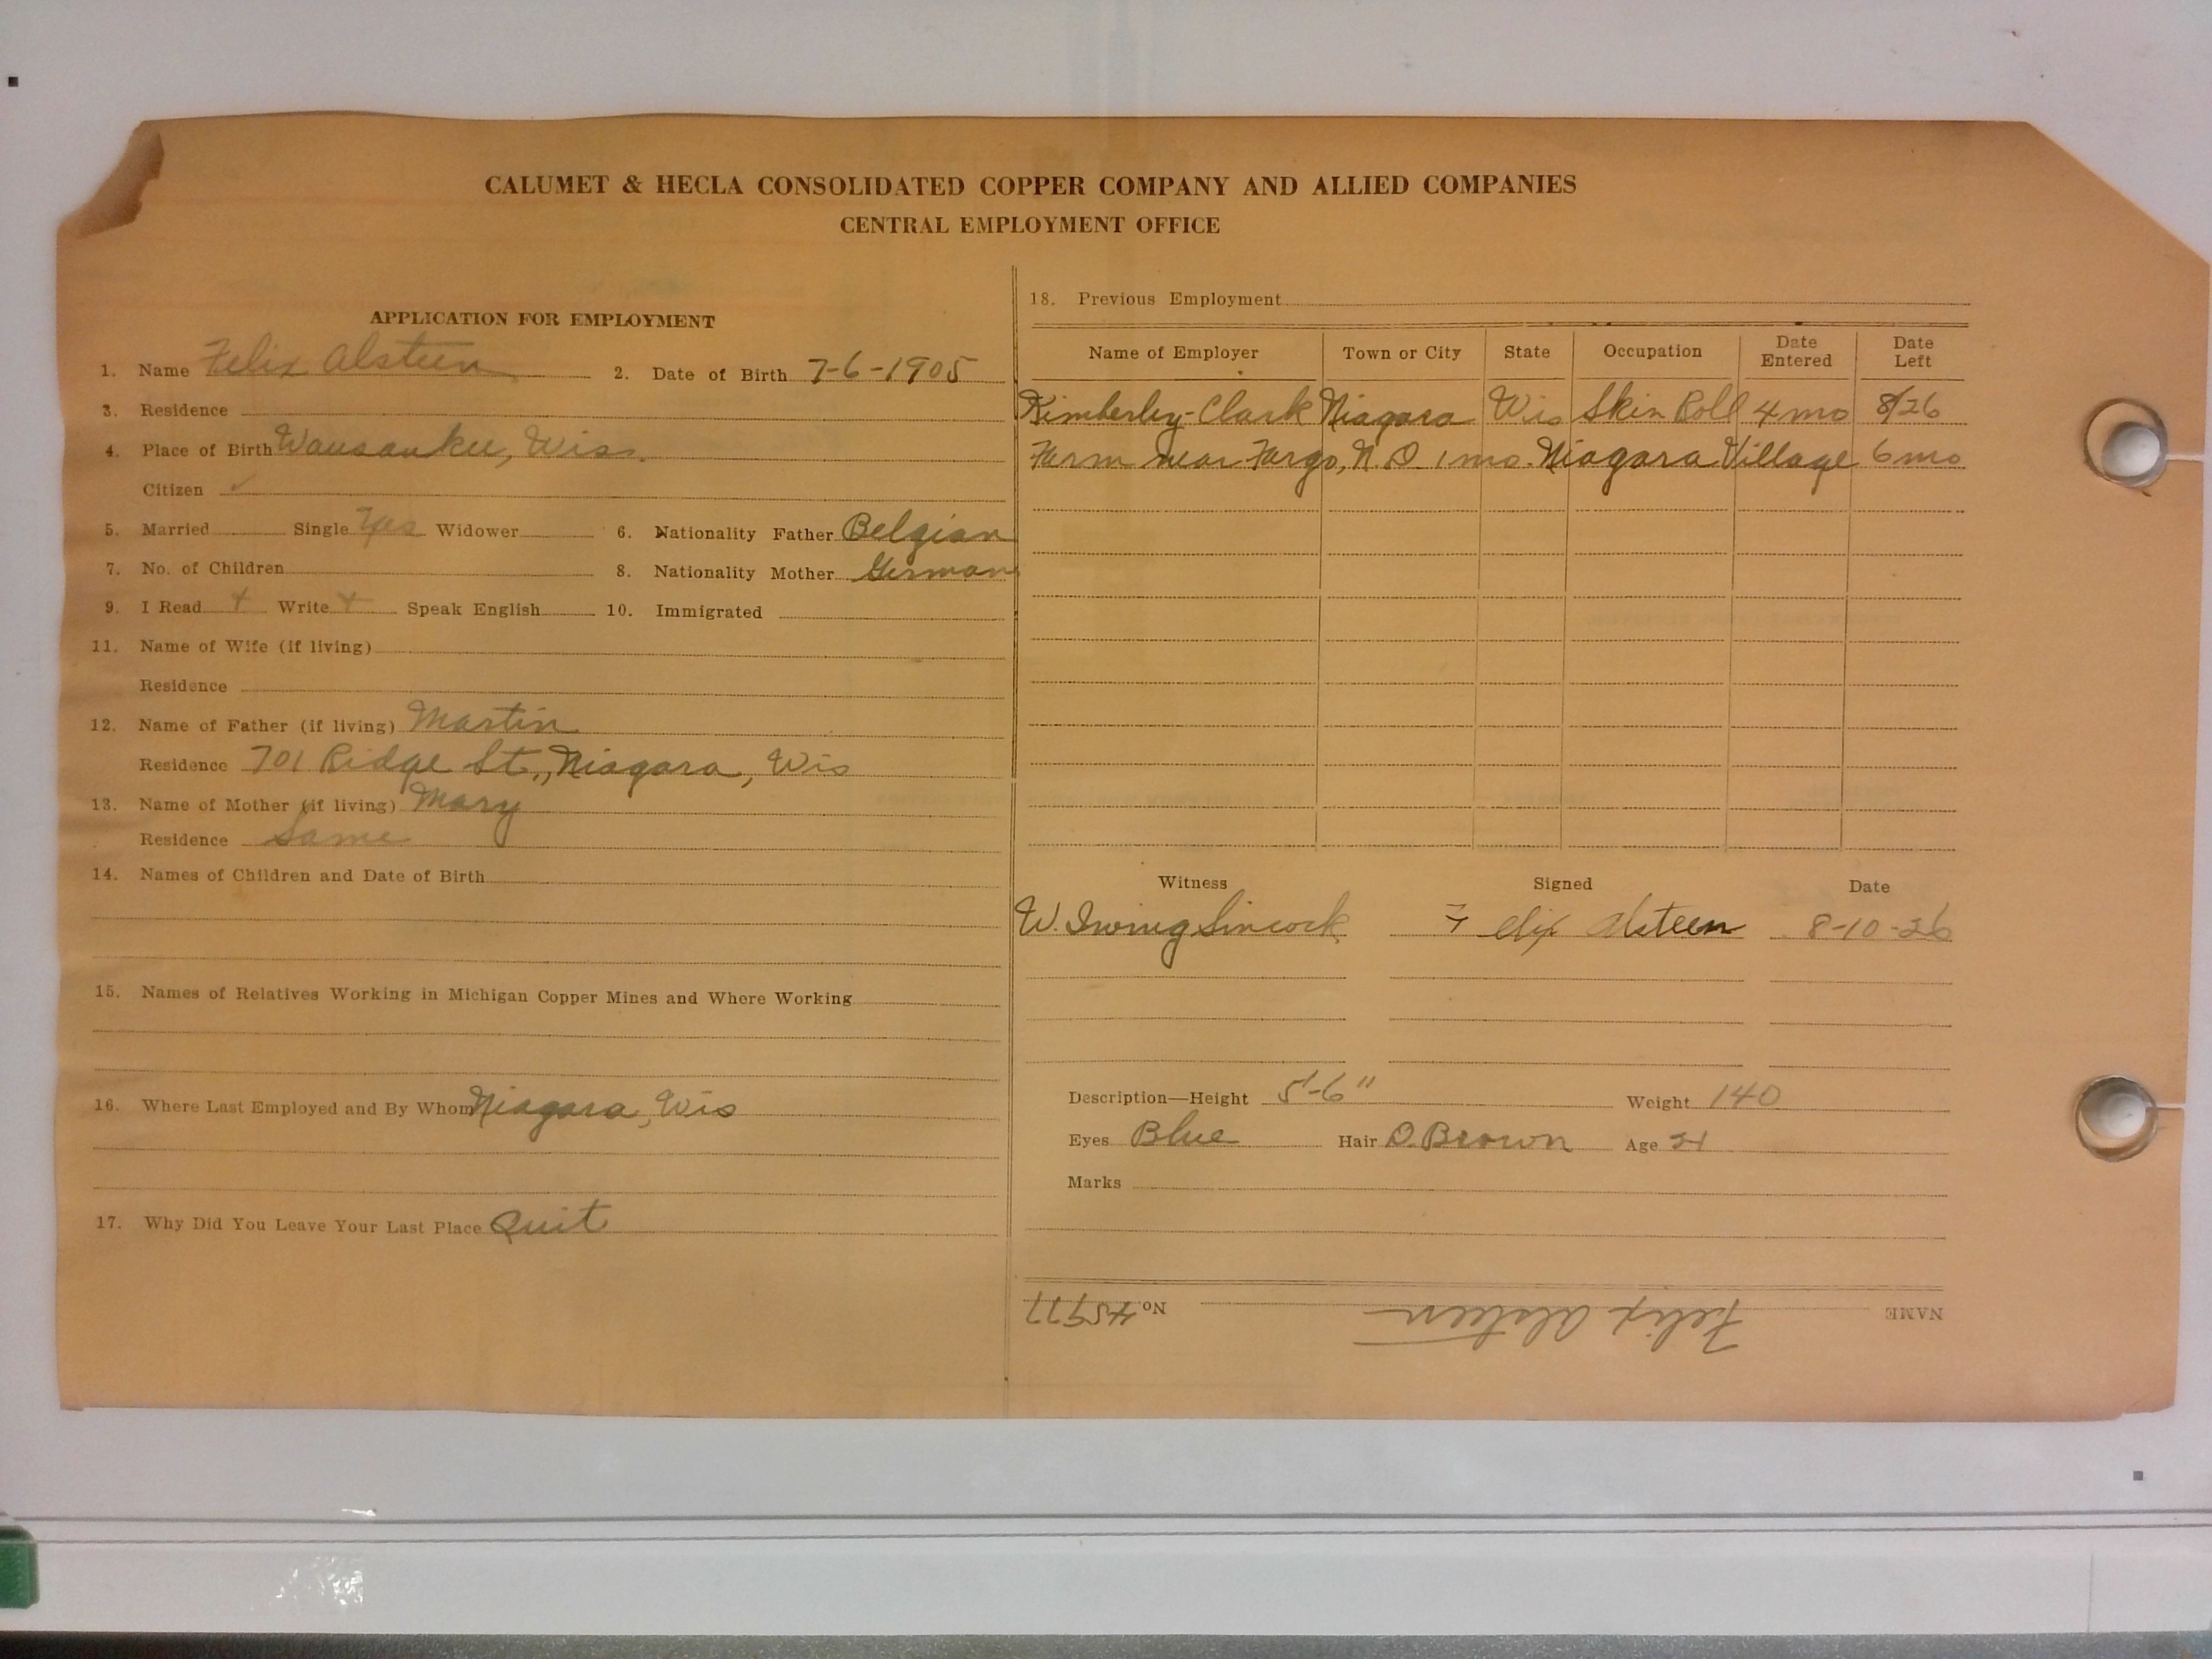 CALUMET & HECLA CONSOLIDATED COPPER COMPANY AND ALLIED COMPANIES
CENTRAL EMPLOYMENT OFFICE
APPLICATION FOR EMPLOYMENT
1. Name Felix Alsteen 2. Date of Birth 7-6-1905
3. Residence
4. Place of Birth Wausaukee, Wis.
Citizen ✓
5. Married Single Yes Widower 6. Nationality Father Belgian
7. No. of Children 8. Nationality Mother German
9. I Read + Write + Speak English 10. Immigrated
11. Name of Wife (if living)
Residence
12. Name of Father (if living) Martin
Residence 701 Ridge St., Niagara, Wis
13. Name of Mother (if living) Mary
Residence Same
14. Names of Children and Date of Birth
15. Names of Relatives Working in Michigan Copper Mines and Where Working
16. Where Last Employed and By Whom Niagara, Wis
17. Why Did You Leave Your Last Place Quit
18. Previous Employment
Name of Employer Town or City State Occupation Date Entered Date Left
Kimberly-Clark Niagara Wis Skin Roll 4 mo 8/26
Farm near Fargo, N.D. 1 mo. Niagara Village 6 mo
Witness Signed Date
W. Irving Sincock Felix Alsteen 8-10-26
Description—Height 5'-6" Weight 140
Eyes Blue Hair D. Brown Age 21
Marks
NAME Felix Alsteen No. 45977